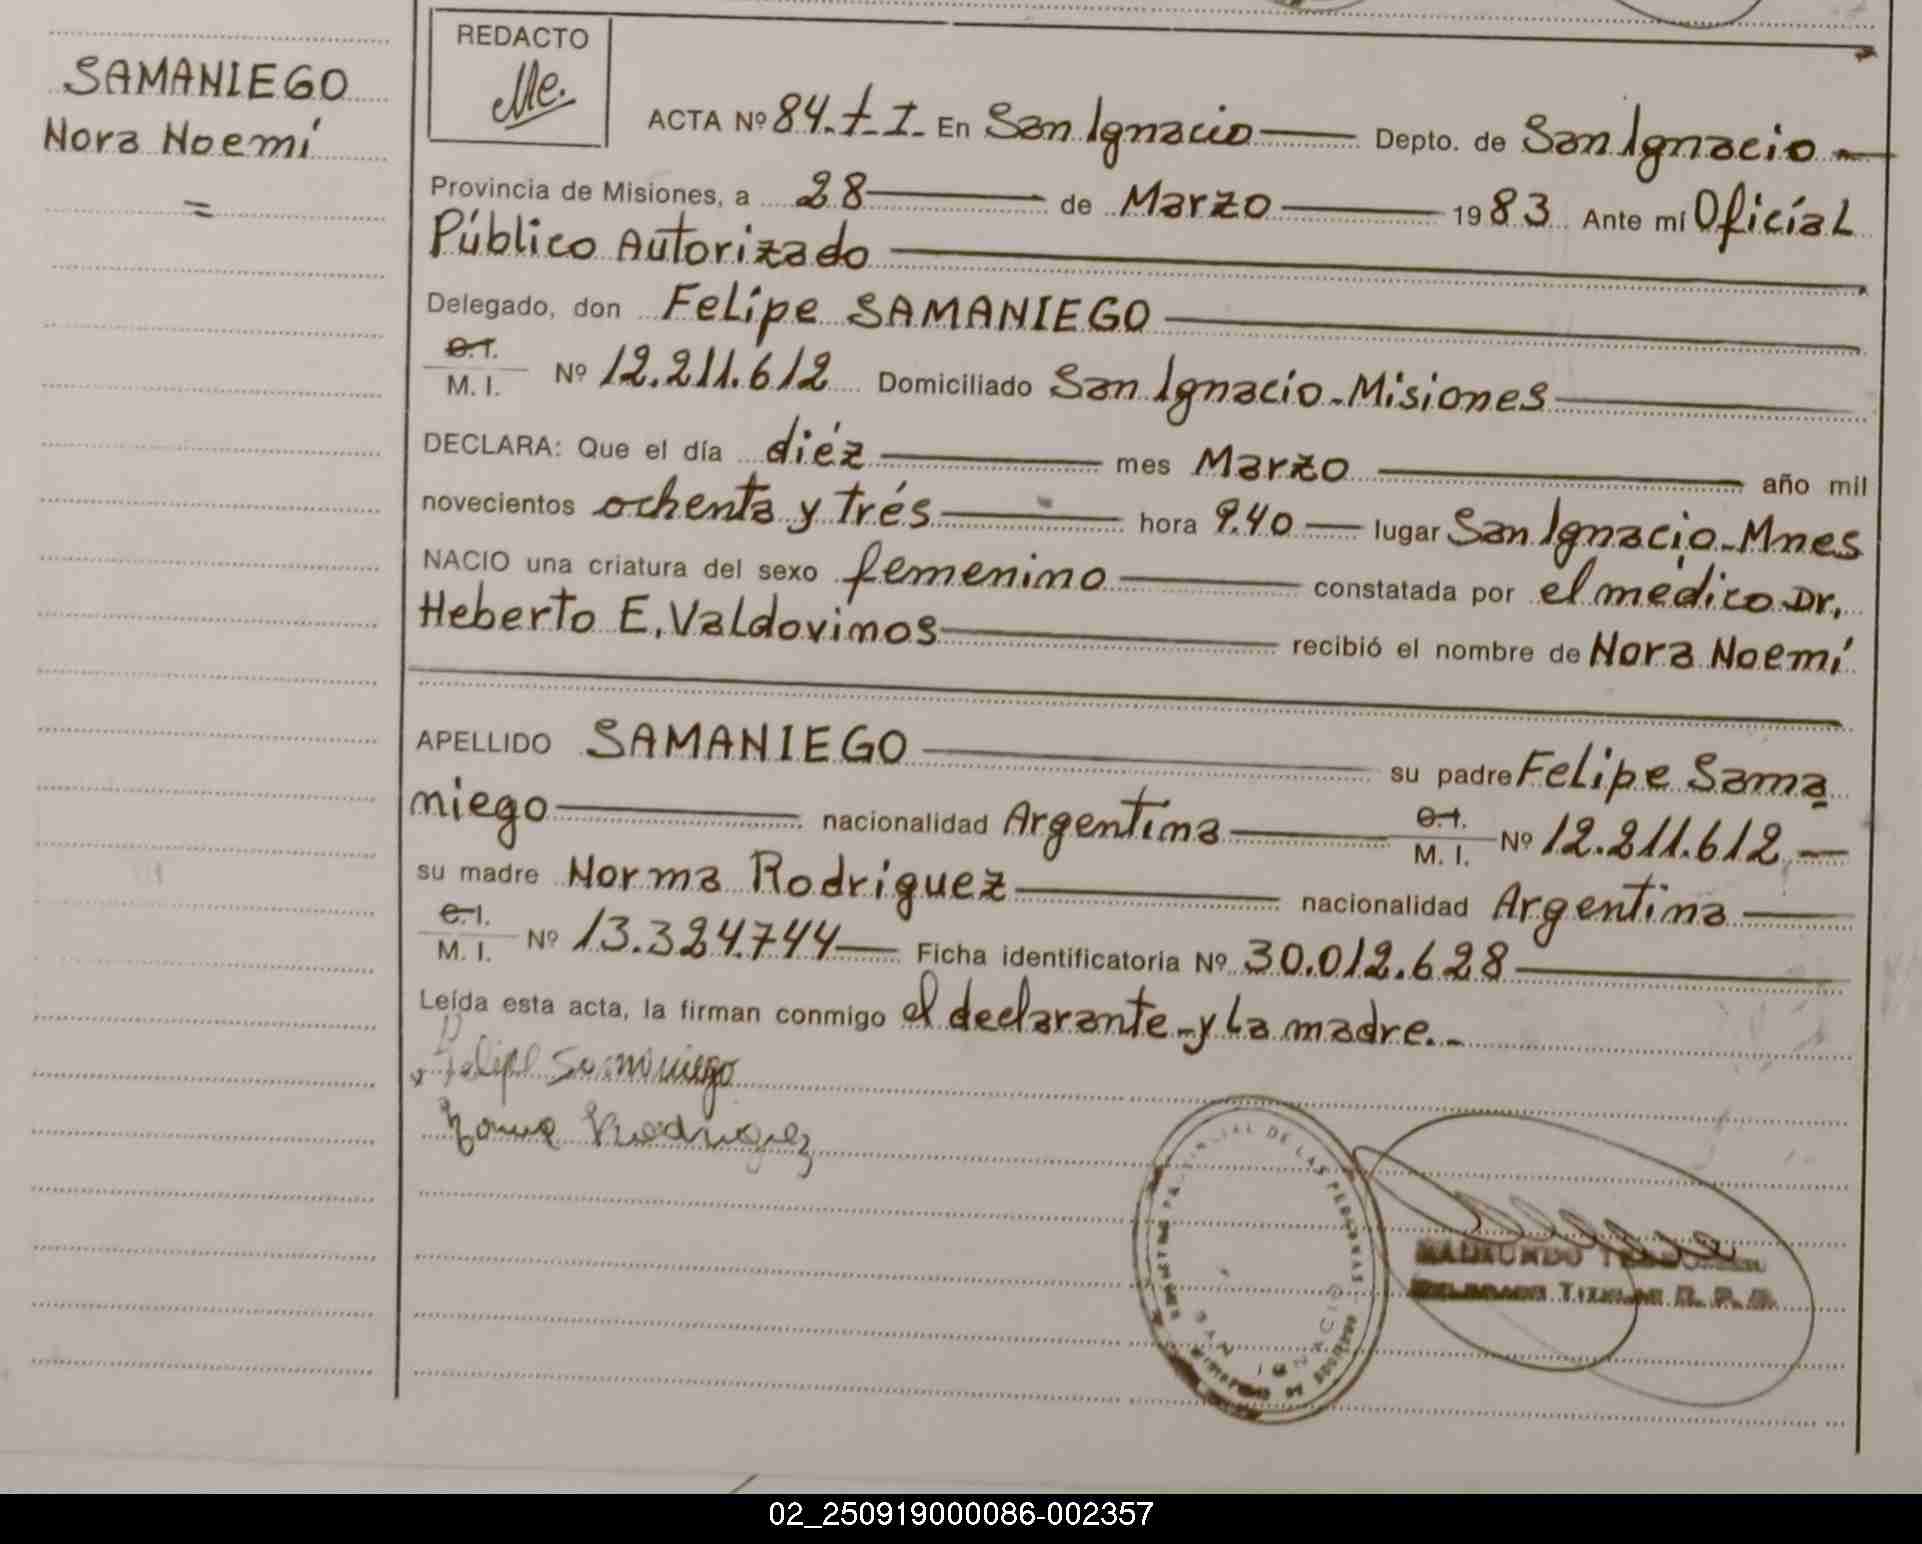 SAMANIEGO
Nora Noemí
=
REDACTO
Me.
ACTA Nº 84.-t-I.- En San Ignacio Depto. de San Ignacio
Provincia de Misiones, a 28 de Marzo 1983 Ante mí Oficial
Público Autorizado
Delegado, don Felipe SAMANIEGO
C.I.
M. I. Nº 12.211.612 Domiciliado San Ignacio-Misiones
DECLARA: Que el día diéz mes Marzo año mil
novecientos ochenta y trés hora 9.40 lugar San Ignacio-Mnes
NACIO una criatura del sexo femenino constatada por el médico Dr.
Heberto E. Valdovinos recibió el nombre de Nora Noemí
APELLIDO SAMANIEGO su padre Felipe Sama
niego nacionalidad Argentina C.I. M. I. Nº 12.211.612.
su madre Norma Rodriguez nacionalidad Argentina
C.I.
M. I. Nº 13.324.744 Ficha identificatoria Nº 30.012.628
Leída esta acta, la firman conmigo el declarante-y La madre.-
Felipe Samaniego
Rodriguez
DE LAS PERSONAS
SAN IGNACIO
02_250919000086-002357